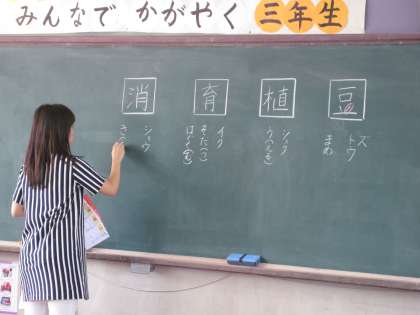 みんなで かがやく 三年生
豆
ズ
トウ
まめ
植
ショク
う(える)
育
イク
そだ(つ)
はぐく(む)
消
ショウ
き